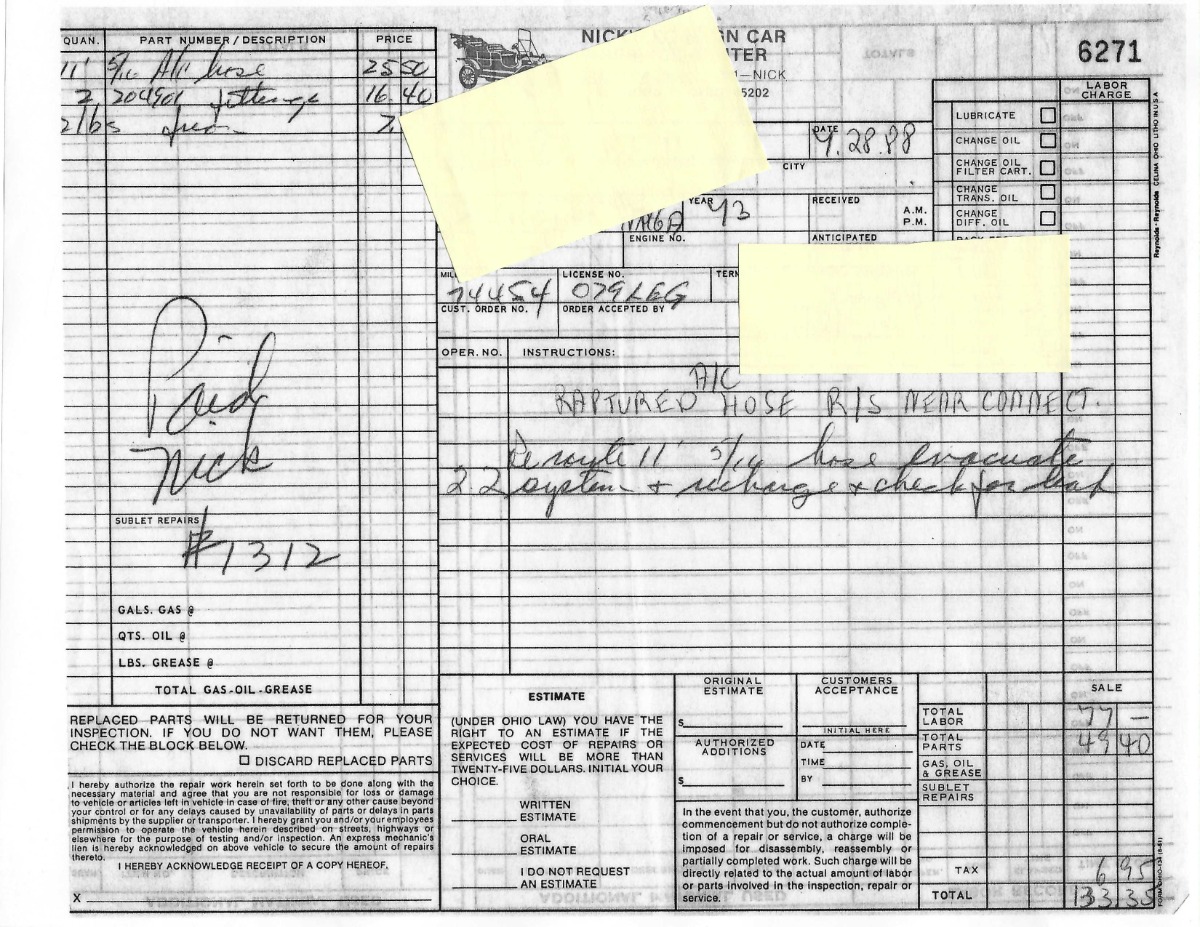 NICK
GN CAR
TER
—NICK
5202
6271
QUAN. PART NUMBER/DESCRIPTION PRICE
11' 5/16 A/C hose 25 50
2 204901 fittings 16.40
2 lbs freon 7.
LABOR CHARGE
LUBRICATE
CHANGE OIL
CHANGE OIL FILTER CART.
CHANGE TRANS. OIL
CHANGE DIFF. OIL
DATE 9.28.88
CITY
YEAR 73
RECEIVED A.M. P.M.
ENGINE NO.
ANTICIPATED
MIL 74454
LICENSE NO. 079LEG
TERM
CUST. ORDER NO.
ORDER ACCEPTED BY
OPER. NO. INSTRUCTIONS:
A/C
RAPTURED HOSE R/S NEAR CONNECT.
Reroute 11' 5/16 hose evacuate
2.2 system + recharge + check for leak
Paid
Nick
SUBLET REPAIRS
#1312
GALS. GAS @
QTS. OIL @
LBS. GREASE @
TOTAL GAS-OIL-GREASE
REPLACED PARTS WILL BE RETURNED FOR YOUR
INSPECTION. IF YOU DO NOT WANT THEM, PLEASE
CHECK THE BLOCK BELOW.
DISCARD REPLACED PARTS
I hereby authorize the repair work herein set forth to be done along with the
necessary material and agree that you are not responsible for loss or damage
to vehicle or articles left in vehicle in case of fire, theft or any other cause beyond
your control or for any delays caused by unavailability of parts or delays in parts
shipments by the supplier or transporter. I hereby grant you and/or your employees
permission to operate the vehicle herein described on streets, highways or
elsewhere for the purpose of testing and/or inspection. An express mechanic's
lien is hereby acknowledged on above vehicle to secure the amount of repairs
thereto.
I HEREBY ACKNOWLEDGE RECEIPT OF A COPY HEREOF,
X
ESTIMATE
(UNDER OHIO LAW) YOU HAVE THE
RIGHT TO AN ESTIMATE IF THE
EXPECTED COST OF REPAIRS OR
SERVICES WILL BE MORE THAN
TWENTY-FIVE DOLLARS. INITIAL YOUR
CHOICE.
WRITTEN ESTIMATE
ORAL ESTIMATE
I DO NOT REQUEST AN ESTIMATE
ORIGINAL ESTIMATE
$
AUTHORIZED ADDITIONS
$
CUSTOMERS ACCEPTANCE
INITIAL HERE
DATE
TIME
BY
In the event that you, the customer, authorize
commencement but do not authorize comple-
tion of a repair or service, a charge will be
imposed for disassembly, reassembly or
partially completed work. Such charge will be
directly related to the actual amount of labor
or parts involved in the inspection, repair or
service.
SALE
TOTAL LABOR 77 —
TOTAL PARTS 49 40
GAS, OIL & GREASE
SUBLET REPAIRS
TAX 6 95
TOTAL 133.35
Reynolds + Reynolds CELINA OHIO LITHO IN USA